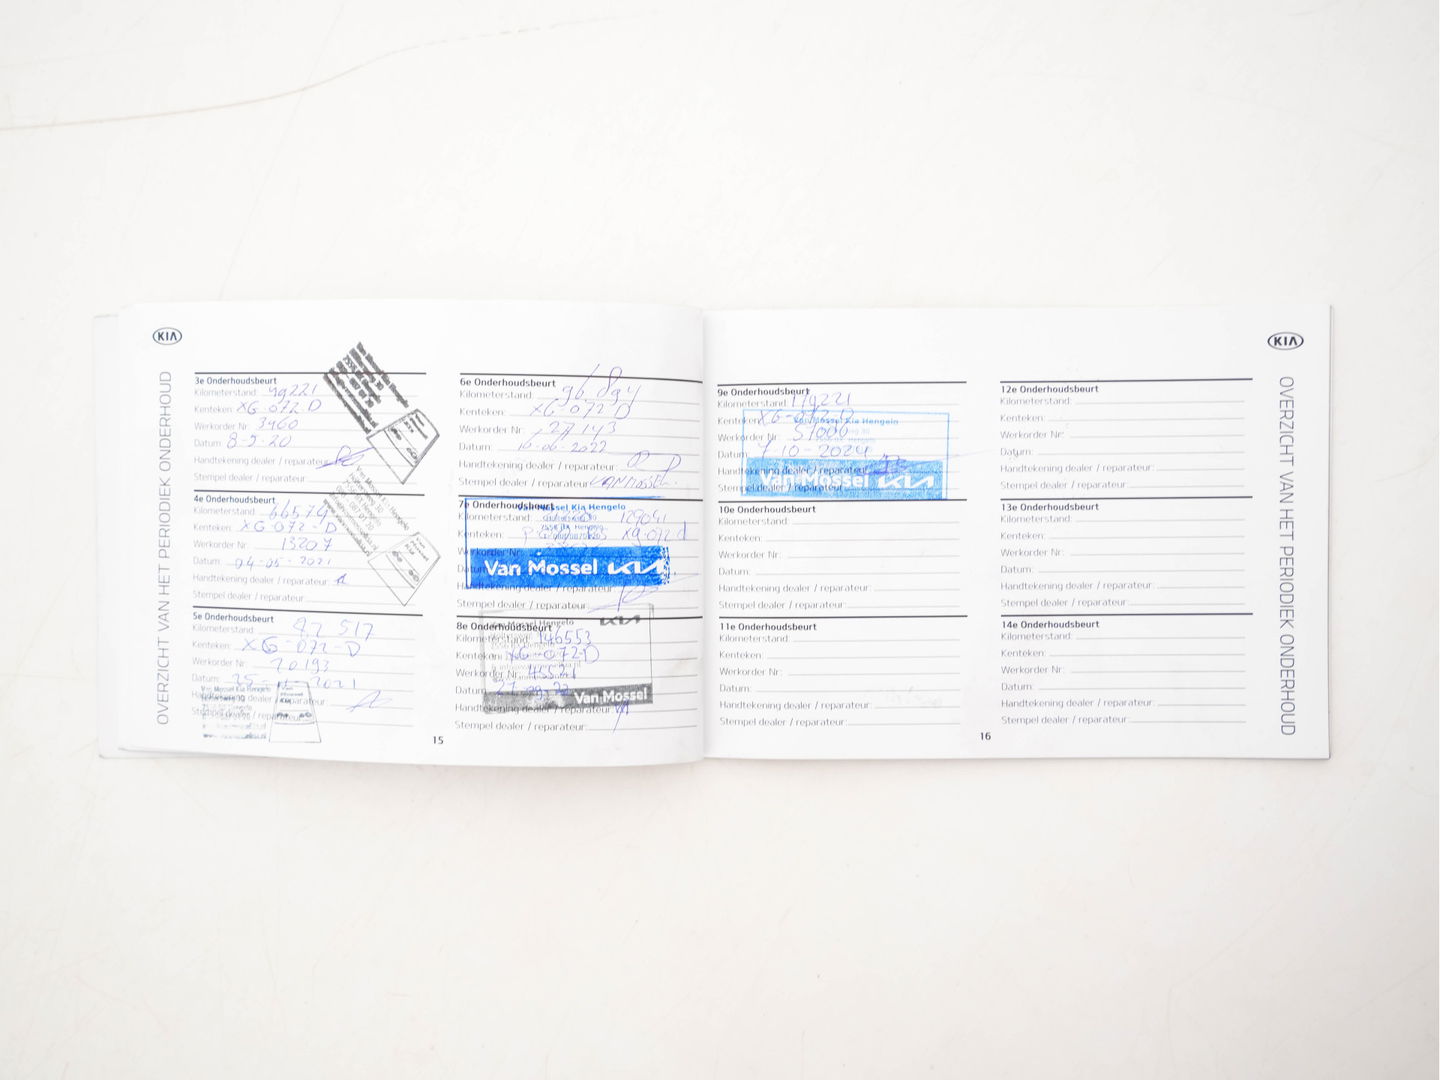 KIA
OVERZICHT VAN HET PERIODIEK ONDERHOUD
3e Onderhoudsbeurt
Kilometerstand: 49221
Kenteken: XG-072 D
Werkorder Nr: 3960
Datum: 8-5-20
Handtekening dealer / reparateur:
Stempel dealer / reparateur:
4e Onderhoudsbeurt
Kilometerstand: 66579
Kenteken: XG-072-D
Werkorder Nr: 13207
Datum: 04-05-2021
Handtekening dealer / reparateur:
Stempel dealer / reparateur:
5e Onderhoudsbeurt
Kilometerstand: 82 517
Kenteken: XG-072-D
Werkorder Nr: 20193
Datum: 25- -2021
Handtekening dealer / reparateur:
Stempel dealer / reparateur:
Van Mossel Kia Hengelo
15
6e Onderhoudsbeurt
Kilometerstand: 96.894
Kenteken: XG-072 D
Werkorder Nr: 27143
Datum: 16-06-2022
Handtekening dealer / reparateur:
Stempel dealer / reparateur: VANMOSSEL.
7e Onderhoudsbeurt
Van Mossel Kia Hengelo
Kilometerstand: 129041
Kenteken: XG-072 d
Werkorder Nr:
Datum:
Van Mossel KIA
Handtekening dealer / reparateur:
Stempel dealer / reparateur:
8e Onderhoudsbeurt
Van Mossel Hengelo KIA
Kilometerstand: 146553
Kenteken: XG-072-D
Werkorder Nr: 45521
Datum:
Van Mossel
Handtekening dealer / reparateur:
Stempel dealer / reparateur:
KIA
OVERZICHT VAN HET PERIODIEK ONDERHOUD
9e Onderhoudsbeurt
Kilometerstand: 179221
Kenteken: XG-072-D
Van Mossel Kia Hengelo
Werkorder Nr: 51006
Datum: 7-10-2024
Handtekening dealer / reparateur:
Van Mossel KIA
Stempel dealer / reparateur:
10e Onderhoudsbeurt
Kilometerstand:
Kenteken:
Werkorder Nr:
Datum:
Handtekening dealer / reparateur:
Stempel dealer / reparateur:
11e Onderhoudsbeurt
Kilometerstand:
Kenteken:
Werkorder Nr:
Datum:
Handtekening dealer / reparateur:
Stempel dealer / reparateur:
16
12e Onderhoudsbeurt
Kilometerstand:
Kenteken:
Werkorder Nr:
Datum:
Handtekening dealer / reparateur:
Stempel dealer / reparateur:
13e Onderhoudsbeurt
Kilometerstand:
Kenteken:
Werkorder Nr:
Datum:
Handtekening dealer / reparateur:
Stempel dealer / reparateur:
14e Onderhoudsbeurt
Kilometerstand:
Kenteken:
Werkorder Nr:
Datum:
Handtekening dealer / reparateur:
Stempel dealer / reparateur: